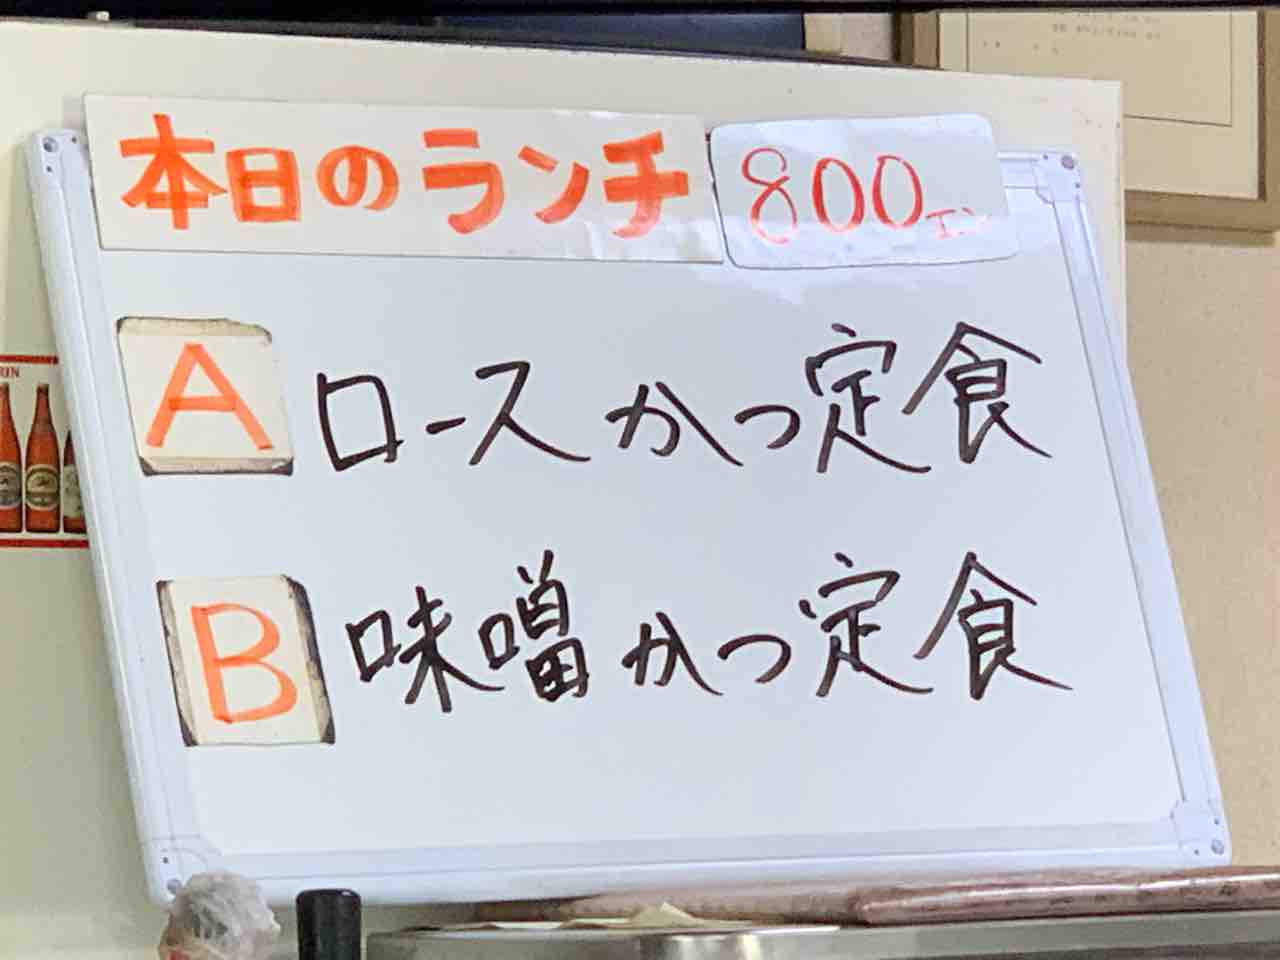 本日のランチ 800エン
A ロースかつ定食
B 味噌かつ定食